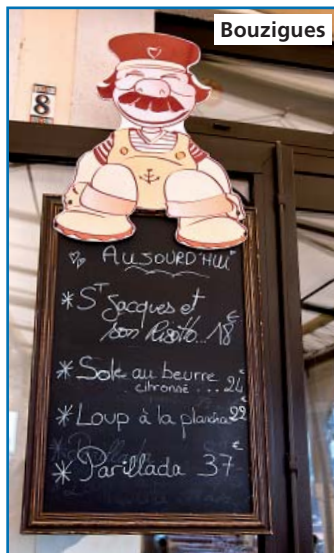 Bouzigues
8
AUJOURD'HUI
* ST Jacques et
son Risotto...18€
* Sole au beurre
citronné ... 24€
* Loup à la plancha 22€
* Parillada 37€